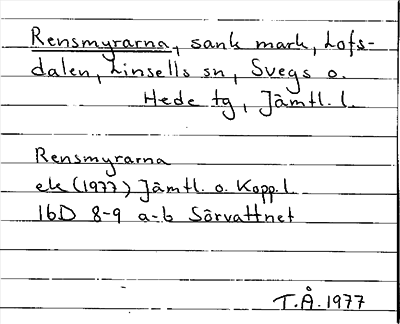 Rensmyrarna, sank mark, Lofs-
dalen, Linsells sn, Svegs o.
Hede tg, Jämtl. l.
Rensmyrarna
ek (1977) Jämtl. o. Kopp. l
16D 8-9 a-b Sörvattnet
T.Å. 1977